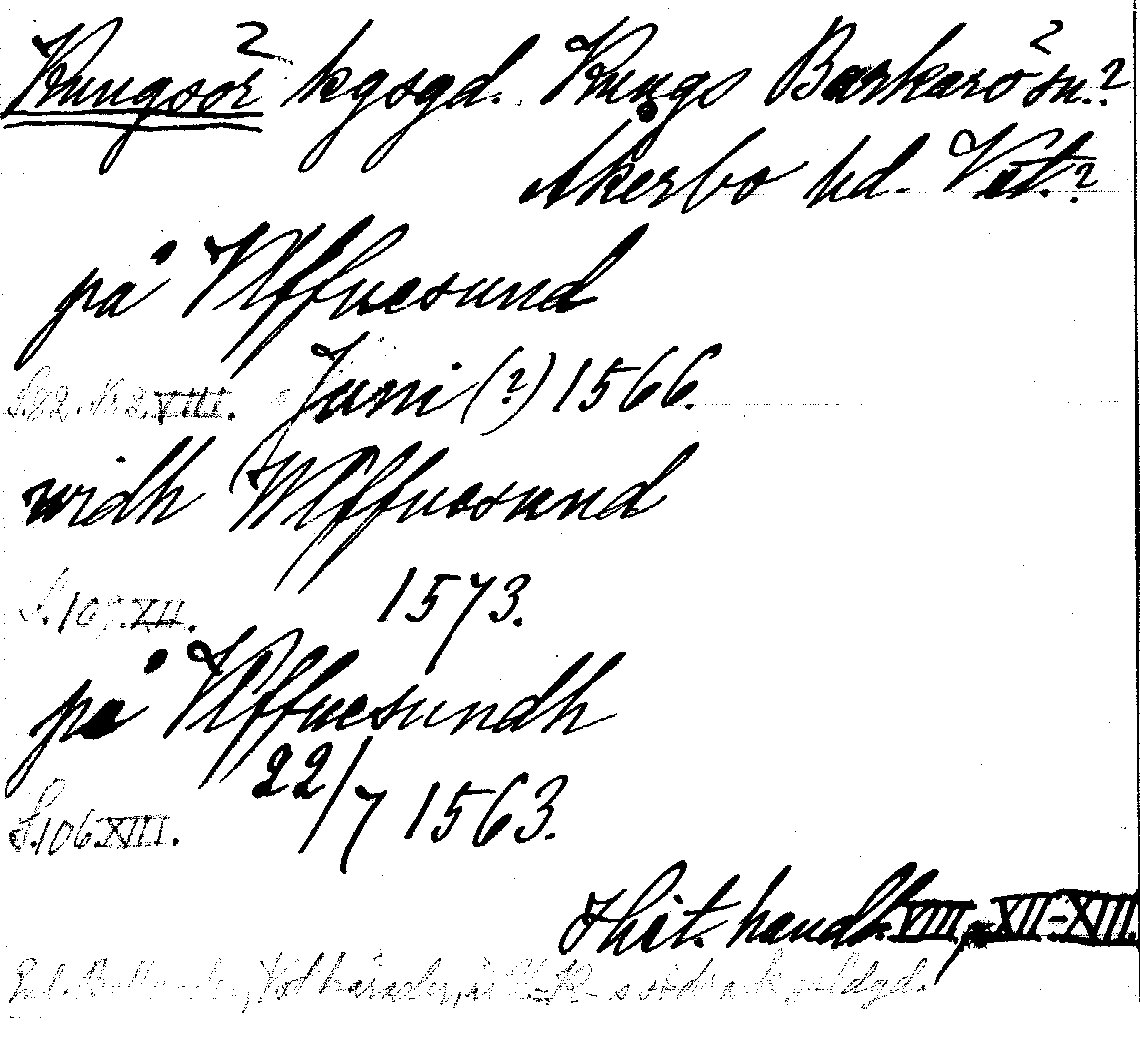 Kungsör? kgsgd. Kungs Barkarö? sn.?
Åkerbo hd. Vst.?
på Vlffuesund
S.82. N:o 2. VIII. Juni (?) 1566.
widh Wlffuesund
S.107. XII. 1573.
på Vlffuesundh
22/7 1563.
S.106 XIII.
Hist. handl. VIII, XII-XIII.